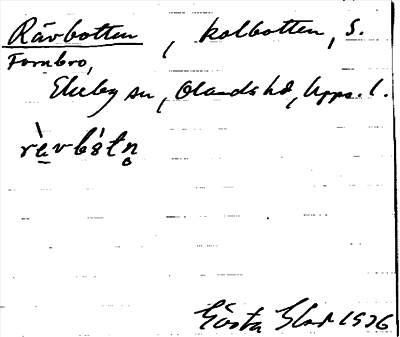 Rävbotten, kolbotten, S.
Fornbro,
Ekeby sn, Olands hd, Upps. l.
rävbòtn̥
Gösta Glad 1936